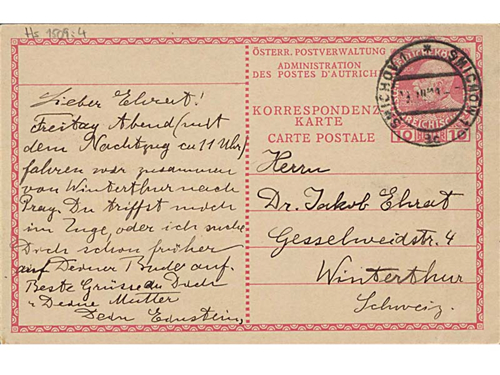 Hs 1509:4
ÖSTERR. POSTVERWALTUNG
ADMINISTRATION
DES POSTES D'AUTRICHE
KORRESPONDENZ-
KARTE
CARTE POSTALE
SMICHOW 1
SMÍCHOV 1
10 10
Lieber Ehrat!
Freitag Abend (mit
dem Nachtzug ca 11 Uhr)
fahren wir zusammen
von Winterthur nach
Prag. Du triffst mich
im Zuge, oder ich suche
Dich schon früher
auf Deiner Bude auf.
Beste Grüsse an Dich
u Deine Mutter
Dein Einstein
Herrn
Dr. Jakob Ehrat
Gesselweidstr. 4
Winterthur
Schweiz.